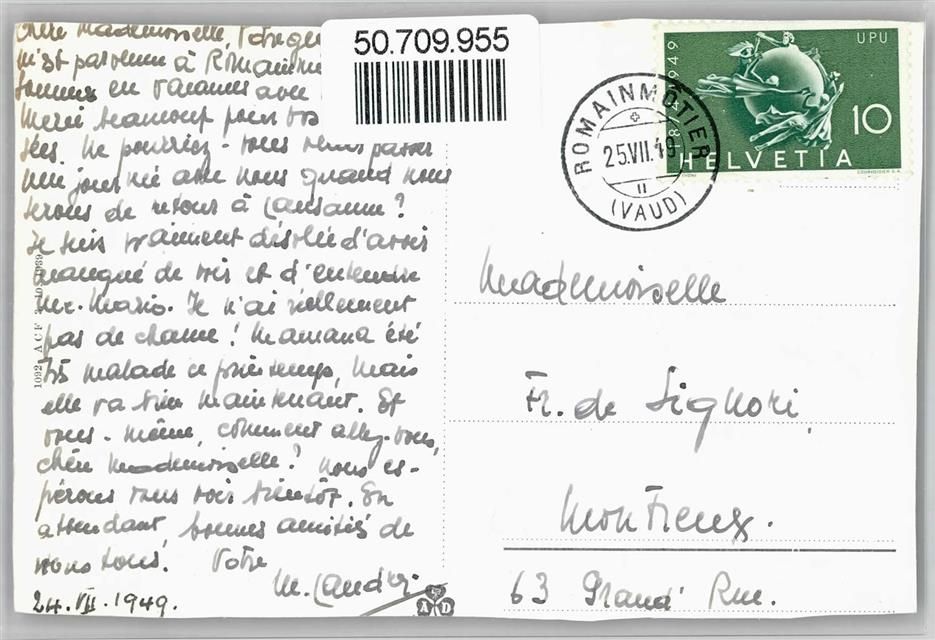 Chère Mademoiselle, Votre
m'est parvenue à Romainm
sommes en vacances avec
Merci beaucoup pour vos
sées. Ne pourriez-vous venir passer
une journée avec nous quand nous
serons de retour à Lausanne?
Je suis vraiment désolée d'avoir
manqué de voir et d'entendre
Mr. Mario. Je n'ai réellement
pas de chance! Maman a été
très malade ce printemps, mais
elle va bien maintenant. Et
vous-même, comment allez-vous,
chère Mademoiselle? Nous es-
pérons vous voir bientôt. En
attendant, bonnes amitiés de
nous tous. Votre
M. Landry.
24.VII.1949.
1092 A C F
A D
50.709.955
ROMAINMÔTIER
25.VII.49
11
(VAUD)
1949
UPU
10
HELVETIA
COURVOISIER S.A.
Mademoiselle
Fr. de Signori,
Montreux.
63 Grand' Rue.